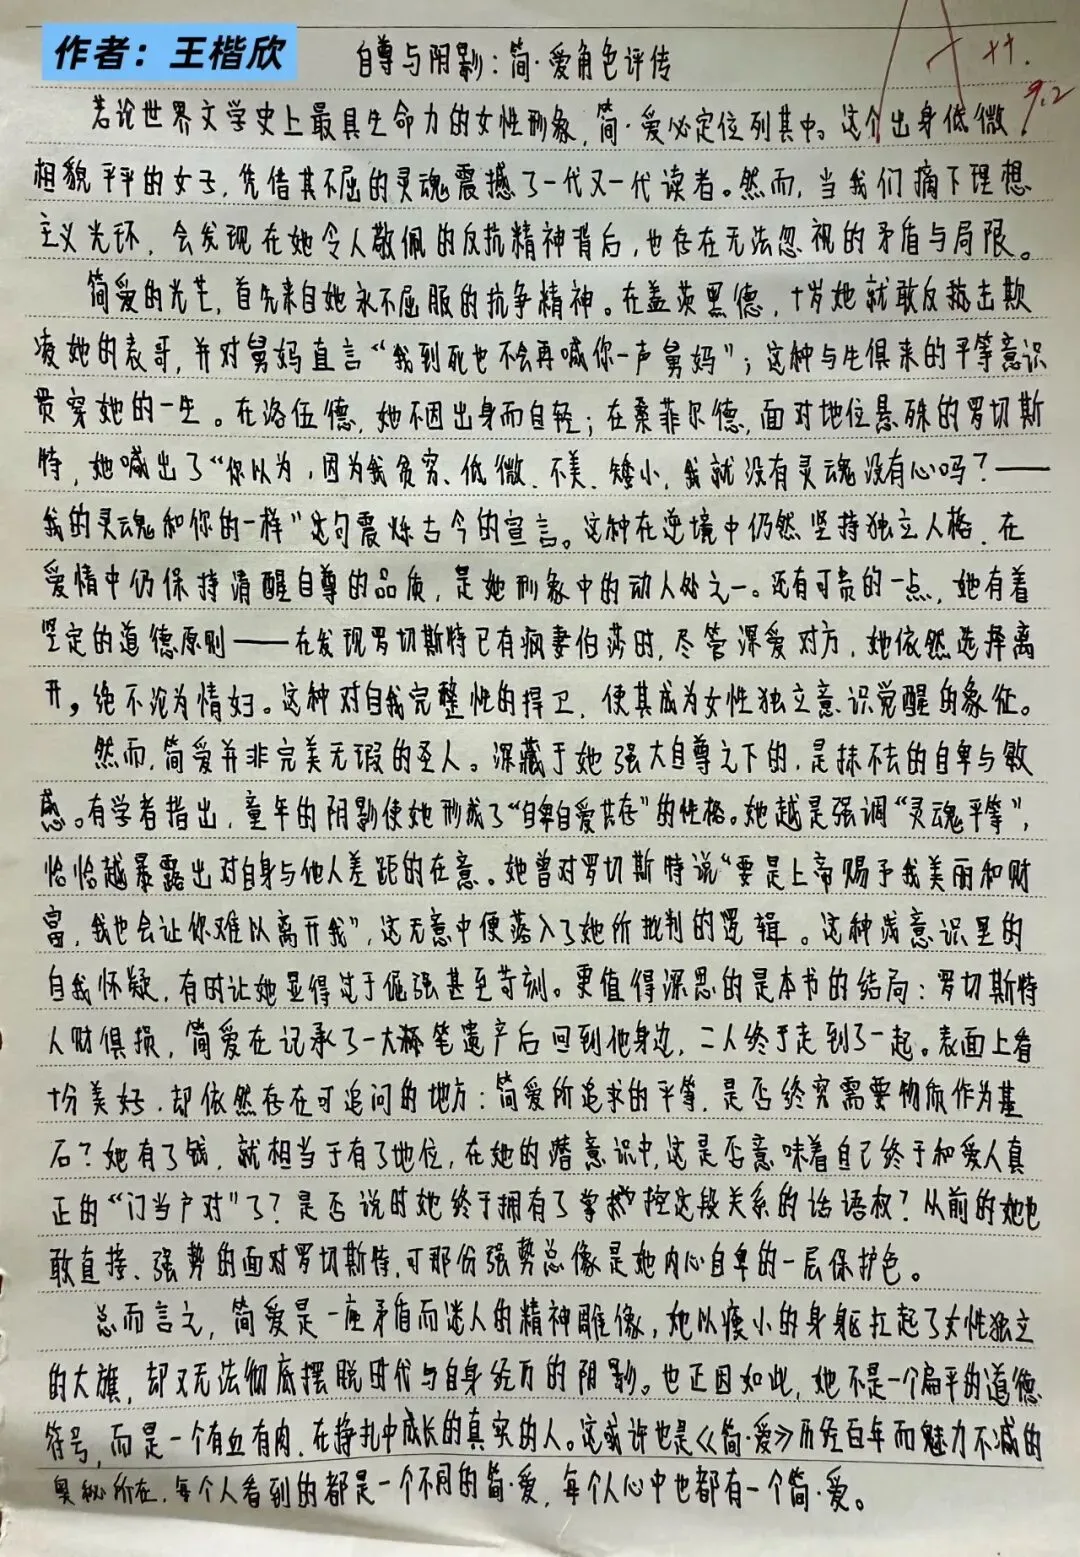 作者：王楷欣
自尊与阴影：简·爱角色评传
A ++.
9.2
若论世界文学史上最具生命力的女性形象，简·爱必定位列其中。这个出身低微、
相貌平平的女子，凭借其不屈的灵魂震撼了一代又一代读者。然而，当我们摘下理想
主义光环，会发现在她令人敬佩的反抗精神背后，也存在无法忽视的矛盾与局限。
简爱的光芒，首先来自她永不屈服的抗争精神。在盖茨黑德，十岁她就敢反抗击欺
凌她的表哥，并对舅妈直言“我到死也不会再喊你一声舅妈”；这种与生俱来的平等意识
贯穿她的一生。在洛伍德，她不因出身而自轻；在桑菲尔德，面对地位悬殊的罗切斯
特，她喊出了“你以为，因为我贫穷、低微、不美、矮小，我就没有灵魂没有心吗？——
我的灵魂和你的一样”这句震烁古今的宣言。这种在逆境中仍然坚持独立人格、在
爱情中仍保持清醒自尊的品质，是她形象中的动人处之一。还有可贵的一点，她有着
坚定的道德原则——在发现罗切斯特已有疯妻伯莎时，尽管深爱对方，她依然选择离
开，绝不沦为情妇。这种对自我完整性的捍卫，使其成为女性独立意识觉醒的象征。
然而，简爱并非完美无瑕的圣人。深藏于她强大自尊之下的，是抹不去的自卑与敏
感。有学者指出，童年的阴影使她形成了“自卑自爱共存”的性格。她越是强调“灵魂平等”，
恰恰越暴露出对自身与他人差距的在意。她曾对罗切斯特说“要是上帝赐予我美丽和财
富，我也会让你难以离开我”，这无意中便落入了她所批判的逻辑。这种浅意识里的
自我怀疑，有时让她显得过于倔强甚至苛刻。更值得深思的是本书的结局：罗切斯特
人财俱损，简爱在记承了一大笔遗产后回到他身边，二人终于走到了一起。表面上看
十分美好，却依然存在可追问的地方：简爱所追求的平等，是否终究需要物质作为基
石？她有了钱，就相当于有了地位，在她的潜意识中，这是否意味着自己终于和爱人真
正的“门当户对”了？是否说时她终于拥有了掌控这段关系的话语权？从前的她也
敢直接、强势的面对罗切斯特，可那份强势总像是她内心自卑的一层保护色。
总而言之，简爱是一座矛盾而迷人的精神雕像，她以瘦小的身躯扛起了女性独立
的大旗，却又无法彻底摆脱时代与自身经历的阴影。也正因如此，她不是一个扁平的道德
符号，而是一个有血有肉、在挣扎中成长的真实的人。这或许也是《简·爱》历经百年而魅力不减的
奥秘所在，每个人看到的都是一个不同的简·爱，每个人心中也都有一个简·爱。